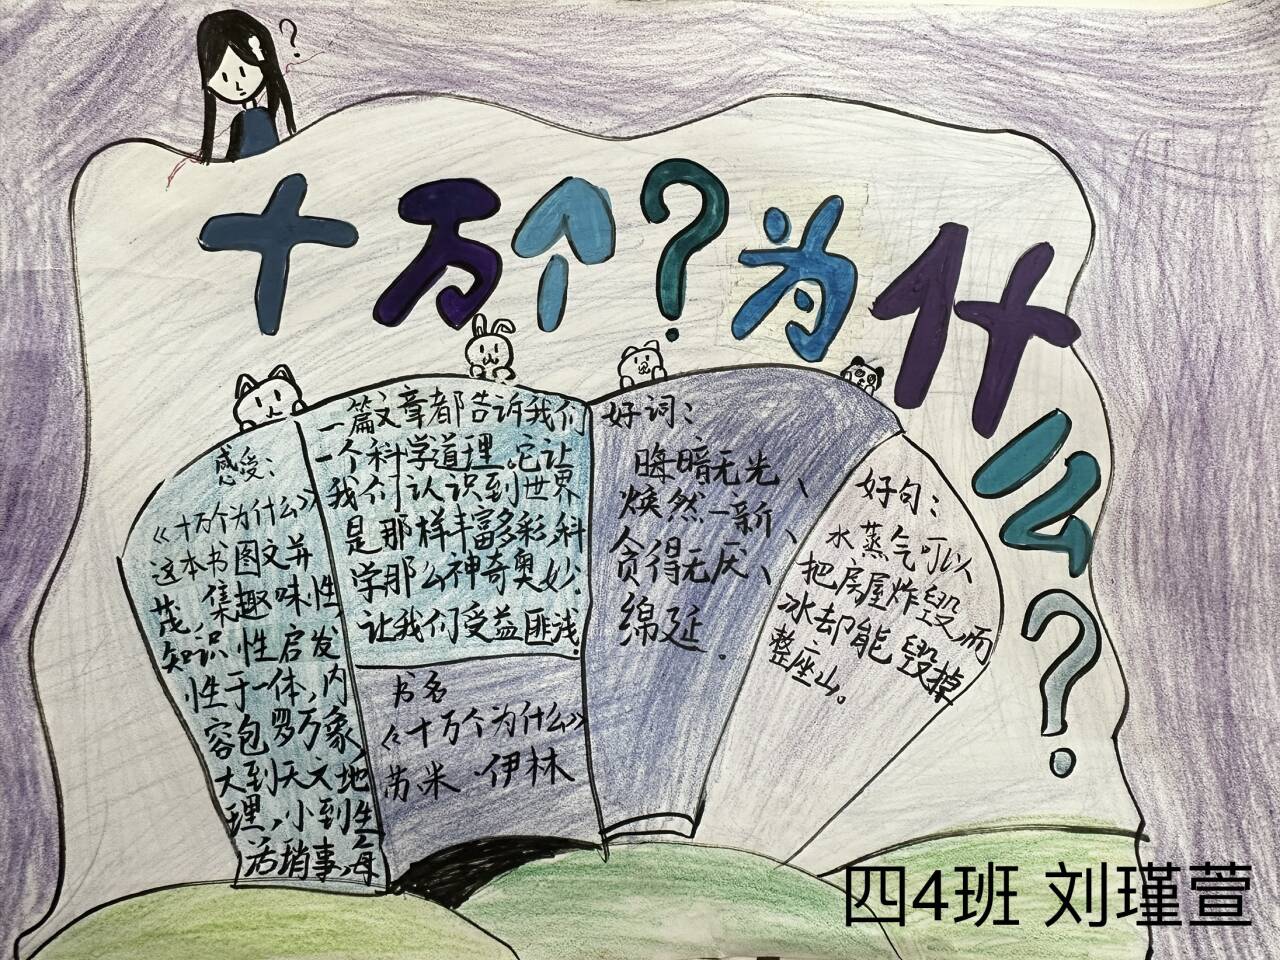 ?
十万个?为什么?
感受:
《十万个为什么》
这本书图文并
茂,集趣味性
知识性启发
性于一体,内
容包罗万象
大到天文地
理,小到生
活琐事,每
一篇文章都告诉我们
一个科学道理。它让
我们认识到世界
是那样丰富多彩,科
学那么神奇奥妙.
让我们受益匪浅.
书名
《十万个为什么》
苏米·伊林
好词:
晦暗无光、
焕然一新、
贪得无厌、
绵延.
好句:
水蒸气可以
把房屋炸毁,而
冰却能毁掉
整座山。
四4班 刘瑾萱